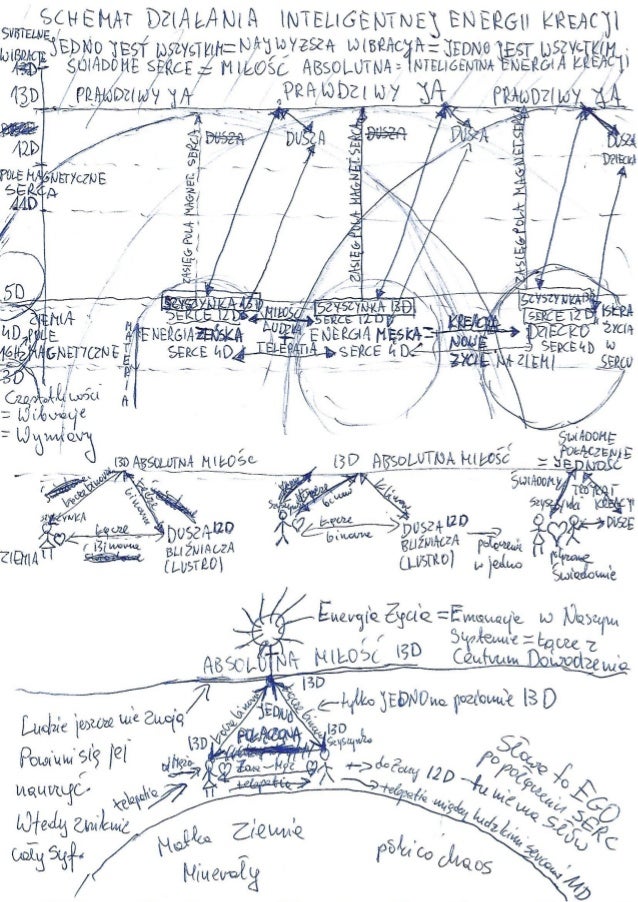 SCHEMAT DZIAŁANIA INTELIGENTNEJ ENERGII KREACJI
SUBTELNE WIBRACJE
JEDNO JEST WSZYSTKIM = NAJWYŻSZA WIBRACJA = JEDNO JEST WSZYSTKIM
ŚWIADOME SERCE = MIŁOŚĆ ABSOLUTNA = INTELIGENTNA ENERGIA KREACJI
13D PRAWDZIWY JA PRAWDZIWY JA PRAWDZIWY JA
DUSZA DUSZA DUSZA DUSZA DUSZA DZIECKA
12D
POLE MAGNETYCZNE
SERCA
11D
ZASIĘG POLA MAGNET. SERCA
ZASIĘG POLA MAGNET. SERCA
ZASIĘG POLA MAGNET. SERCA
5D
SZYSZYNKA 13D SZYSZYNKA 13D SZYSZYNKA 13D
ZIEMIA SERCE 12D MIŁOŚĆ SERCE 12D SERCE 12D ISKRA
4D POLE ENERGIA ŻEŃSKA LUDZKA + ENERGIA MĘSKA = KREACJA DZIECKO ŻYCIA
MAGNETYCZNE SERCE 4D TELEPATIA SERCE 4D NOWE SERCE 4D W
ŻYCIE NA ZIEMI SERCU
MATERIA
3D
Częstotliwości
= Wibracje
= Wymiary
13D ABSOLUTNA MIŁOŚĆ 13D ABSOLUTNA MIŁOŚĆ
ŚWIADOME
POŁĄCZENIE
= JEDNOŚĆ
łącze binarne
SZYSZYNKA
Łącze
Binarne
DUSZA 12D
BLIŹNIACZA
(LUSTRO)
Łącze
binarne
DUSZA 12D
BLIŹNIACZA
(LUSTRO)
połączenie
w jedno
ŚWIADOMY
KREACJI
DUSZE
Świadomie
ZIEMIA
Energia Życia = Emanacje w Naszym
Systemie = Łącze z
Centrum Dowodzenia
ABSOLUTNA MIŁOŚĆ 13D
13D
tylko JEDNO na poziomie 13D
JEDNO
POŁĄCZONA
łącze binarne
13D
13D
szyszynka
Żona - Mąż
telepatia
telepatia
do Żony 12D - tu nie ma słów
telepatia między ludzkimi sercami MD
Słowa to EGO
po połączeniu SERC
Ludzie jeszcze nie znają
Powinni się jej
nauczyć
Wtedy zniknie
cały syf.
Matka Ziemia
Minerały
póki co chaos